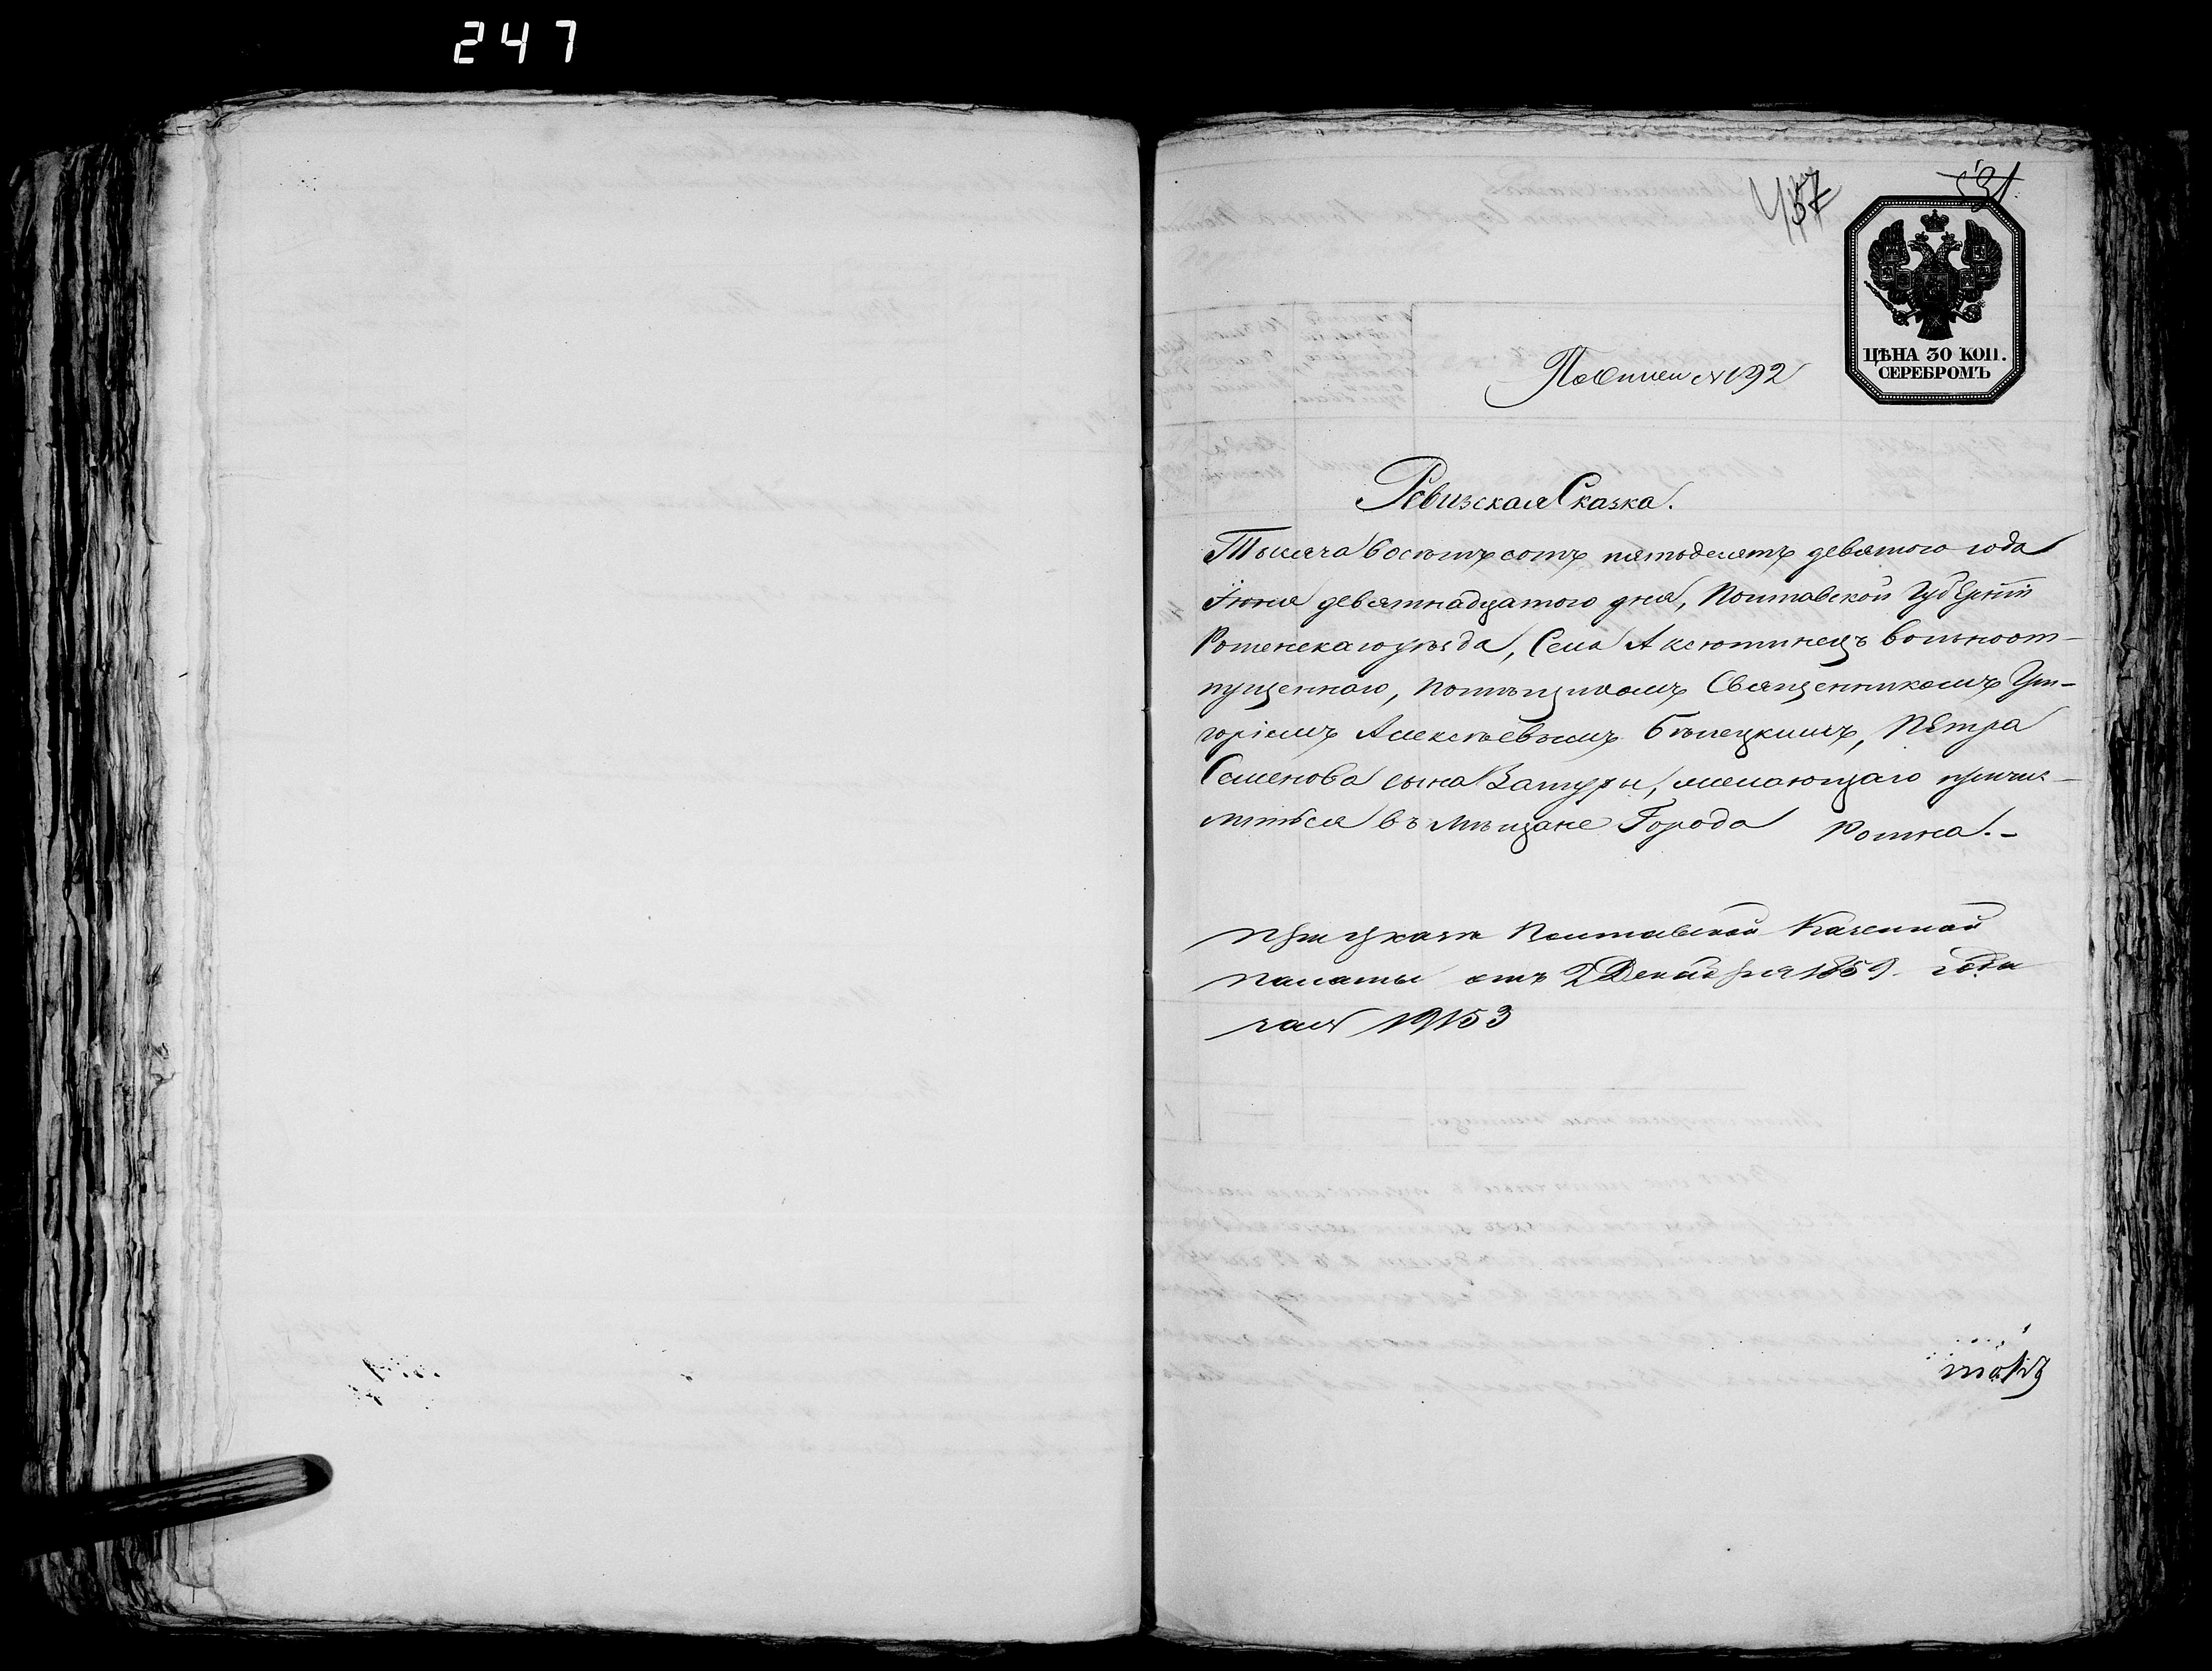 247
457
531
ЦѢНА 30 КОП.
СЕРЕБРОМЪ
По описи № 192
Ревизская Сказка.
Тысяча восемъ сотъ пятьдесятъ девятого года
Іюня девятнадцатого дня, Полтавской Губерніи
Роменскаго уѣзда, Села Аксютинецъ вольноот-
пущенного, помѣщикомъ Священникомъ Гри-
горіемъ Алексѣевымъ Бѣлецкимъ, Петра
Семенова сына Вакуры, желающаго причис-
литься въ мѣщане Города Ромна.-
При указѣ Полтавской Казенной
палаты отъ 2 Декабря 1859 года
за № 19153